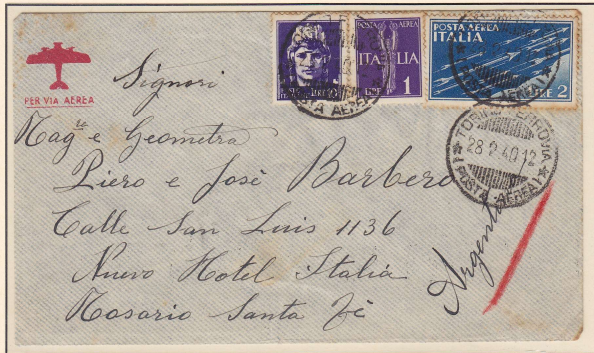 POSTA AEREA
ITALIA
LIRE 2
POSTA AEREA
ITALIA
LIRE 1
LIRE 10
POSTA AEREA
PER VIA AEREA
TORINO FERROVIA
28.2.40.12
(POSTA AEREA)
Signori
Rag.re e Geometra
Piero e José Barbero
Calle San Luis 1136
Nuevo Hotel Italia
Rosario Santa Fè
Argentina